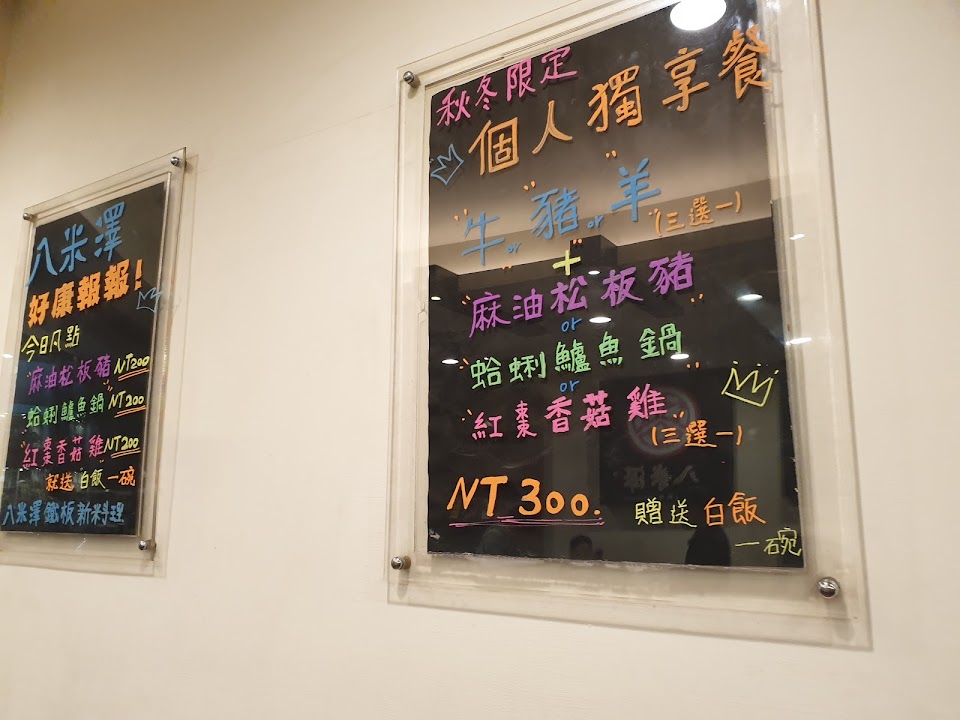 八米澤
好康報報!
今日凡點
麻油松板豬 NT200
蛤蜊鱸魚鍋 NT200
紅棗香菇雞 NT200
就送白飯一碗
八米澤鐵板新料理
秋冬限定
個人獨享餐
"牛"or"豬"or"羊"
(三選一)
+
"麻油松板豬"
or
"蛤蜊鱸魚鍋"
or
"紅棗香菇雞"
(三選一)
NT 300.
贈送白飯
一碗